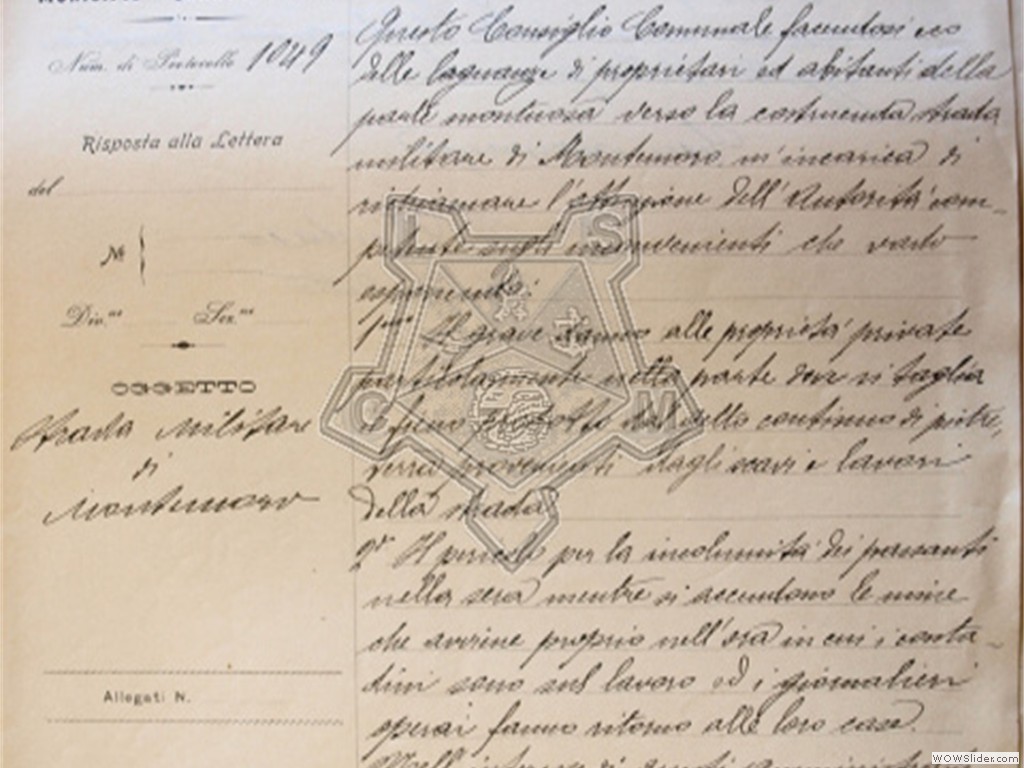 Num. di Protocollo 1049
Risposta alla Lettera
del
N.
Div.ne Sez.ne
OGGETTO
Strada Militare
di
Montemoro
Allegati N.
Questo Consiglio Comunale facendosi eco
delle lagnanze di proprietari ed abitanti della
parte montuosa verso la costruenda strada
militare di Montemoro m'incarica di
richiamare l'attenzione dell'Autorità com-
petente sugli inconvenienti che vado
esponendo:
1mo Il grave danno alle proprietà private
particolarmente nella parte dove si taglia
il fieno prodotto dal continuo di pietre,
terra provenienti dagli scavi e lavori
della strada
2° Il pericolo per la incolumità dei passanti
nella sera mentre si accendono le mine
che avviene proprio nell'ora in cui i conta-
dini sono sul lavoro ed i giornalieri
operai fanno ritorno alle loro case.
I S C M
WOWSlider.com